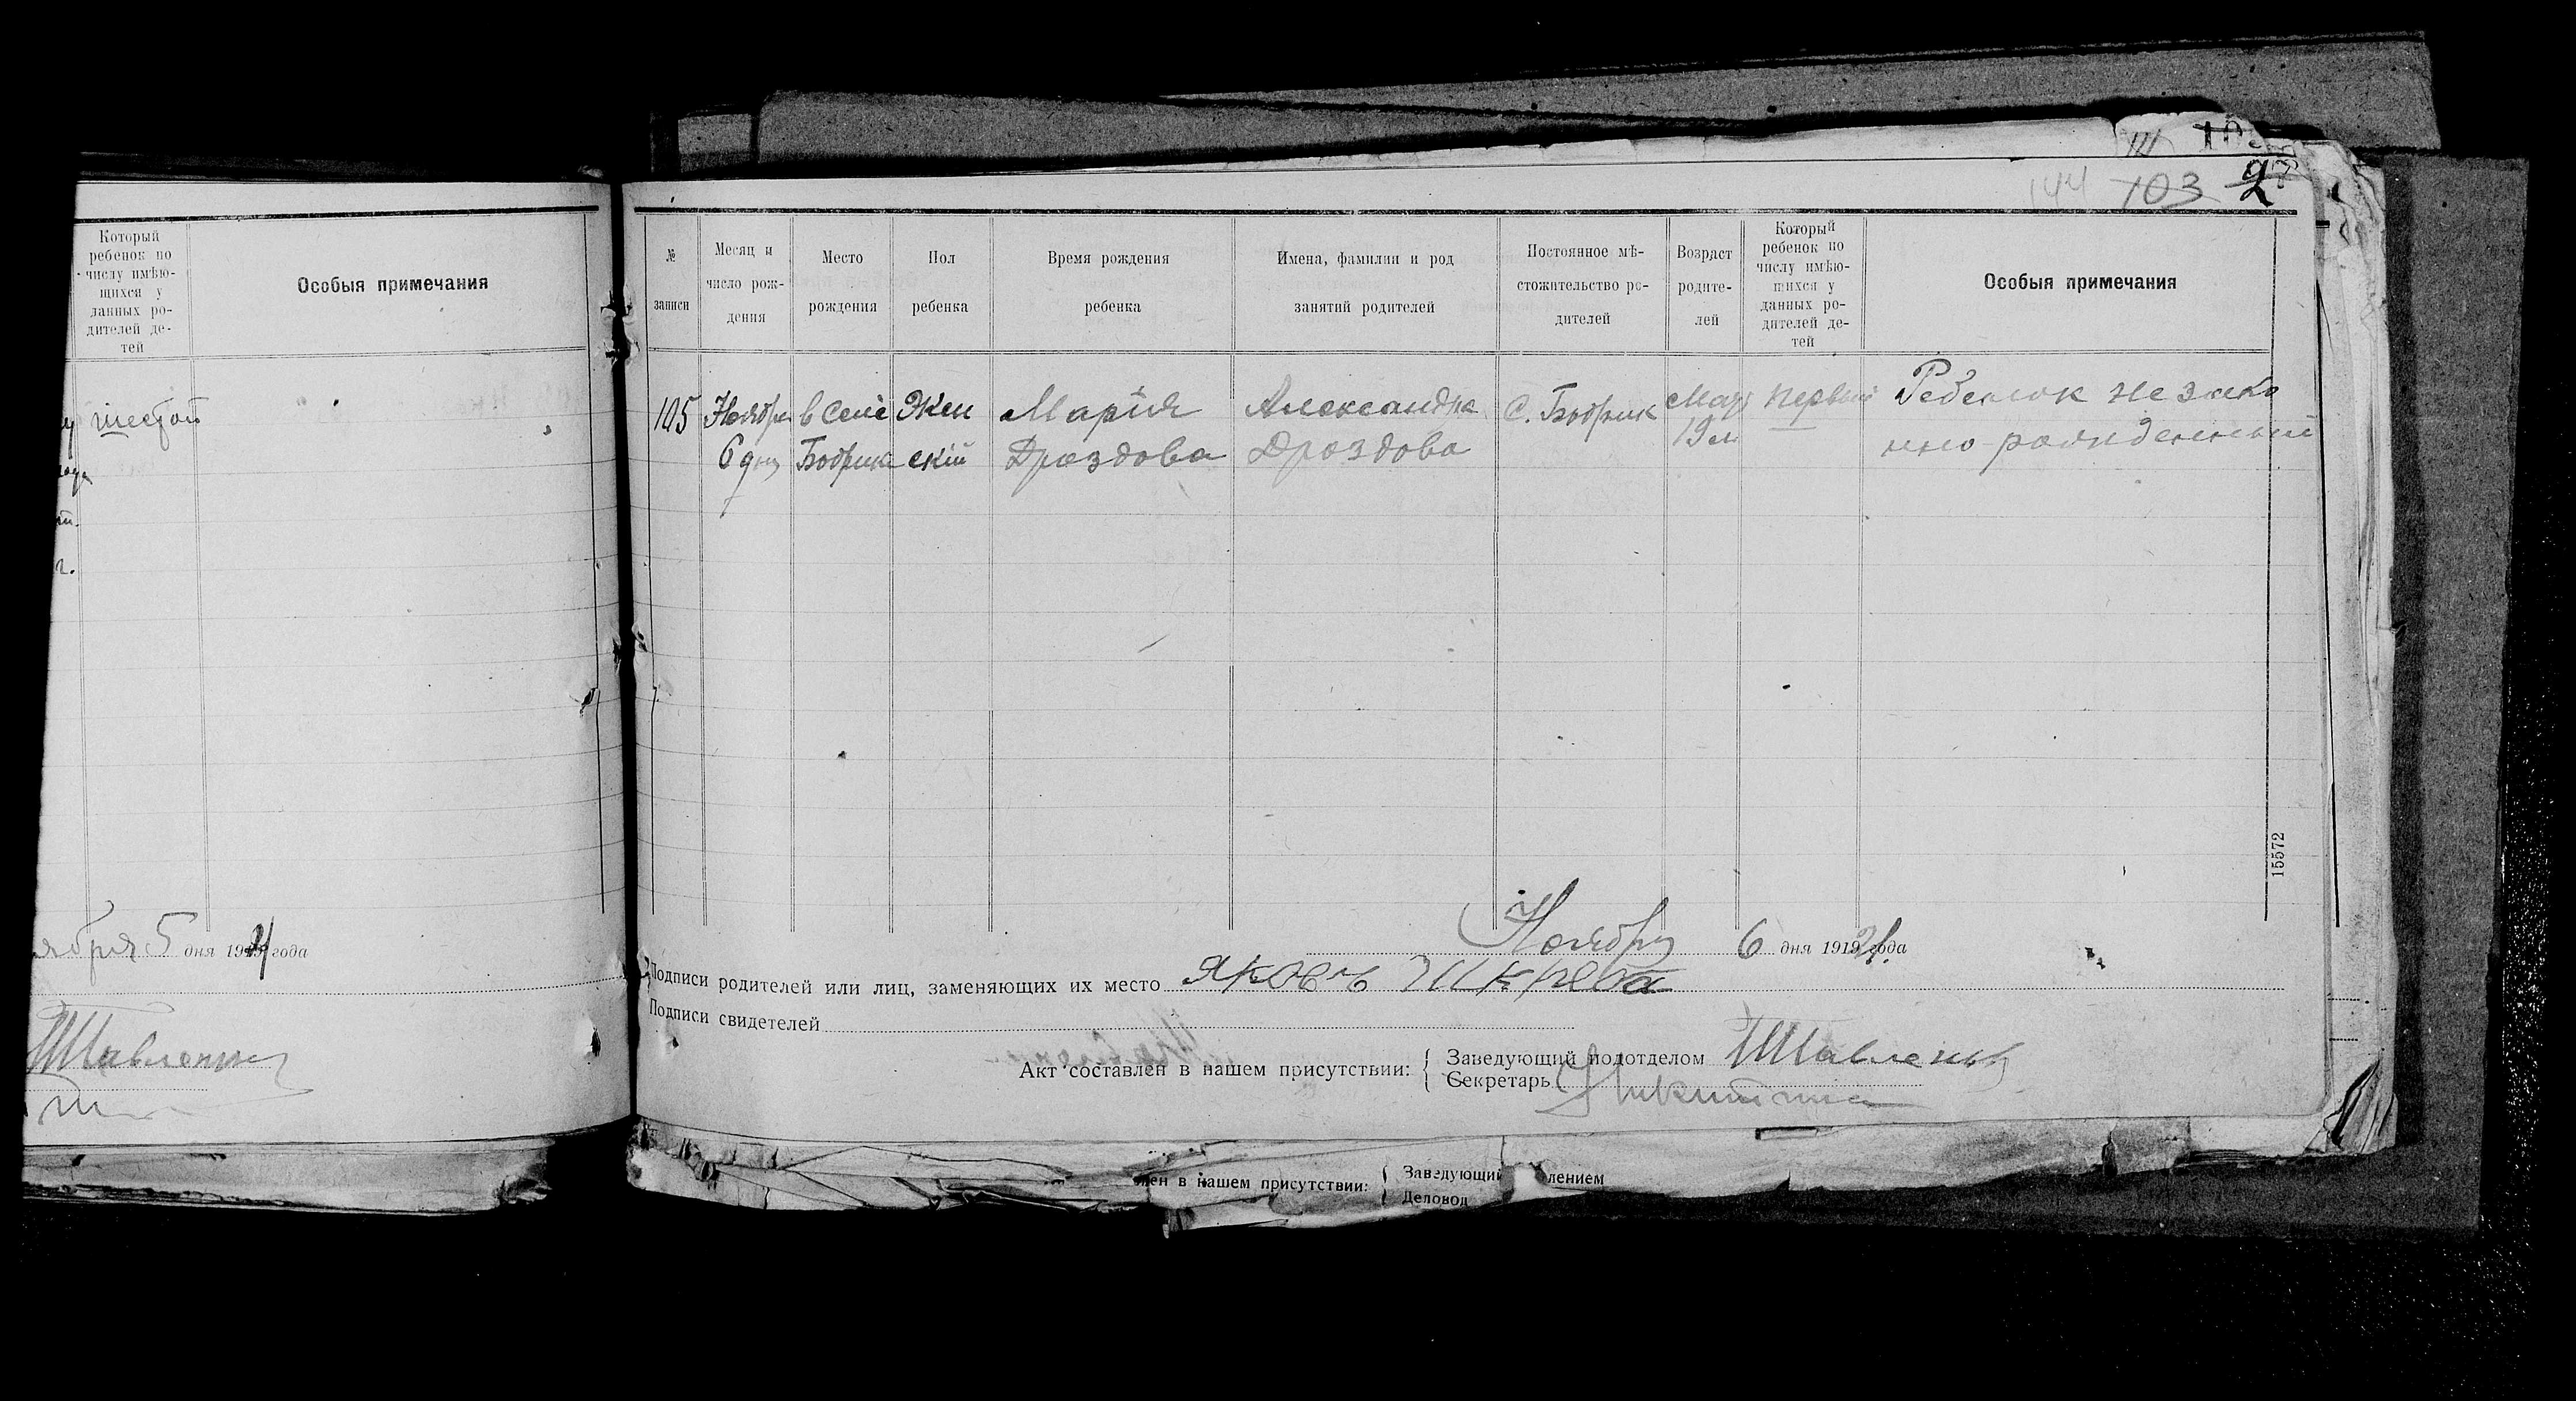 144 103
Который
ребенок по
числу имѣю-
щихся у
данных ро-
дителей де-
тей
Особыя примечания
шестой
ября 5 дня 1921 года
Шавленко
№
записи
Месяц и
число рож-
дения
Место
рождения
Пол
ребенка
Время рождения
ребенка
Имена, фамилии и род
занятий родителей
Постоянное мѣ-
стожительство ро-
дителей
Возраст
родите-
лей
Который
ребенок по
числу имѣю-
щихся у
данных ро-
дителей де-
тей
Особыя примечания
105
Ноября
6 дня
в селе
Бобрика
Жен
скій
Марія
Дроздова
Александра
Дроздова
С. Бобрик
19 л.
первый
Ребенок незако
нно-рожденный
15572
Ноября 6 дня 1921 года
Подписи родителей или лиц, заменяющих их место Яковъ Шкряба
Подписи свидетелей
Акт составлен в нашем присутствии:
Заведующий подотделом Шавленко
Секретарь Никитина
ен в нашем присутствии:
Заведующий лением
Деловод